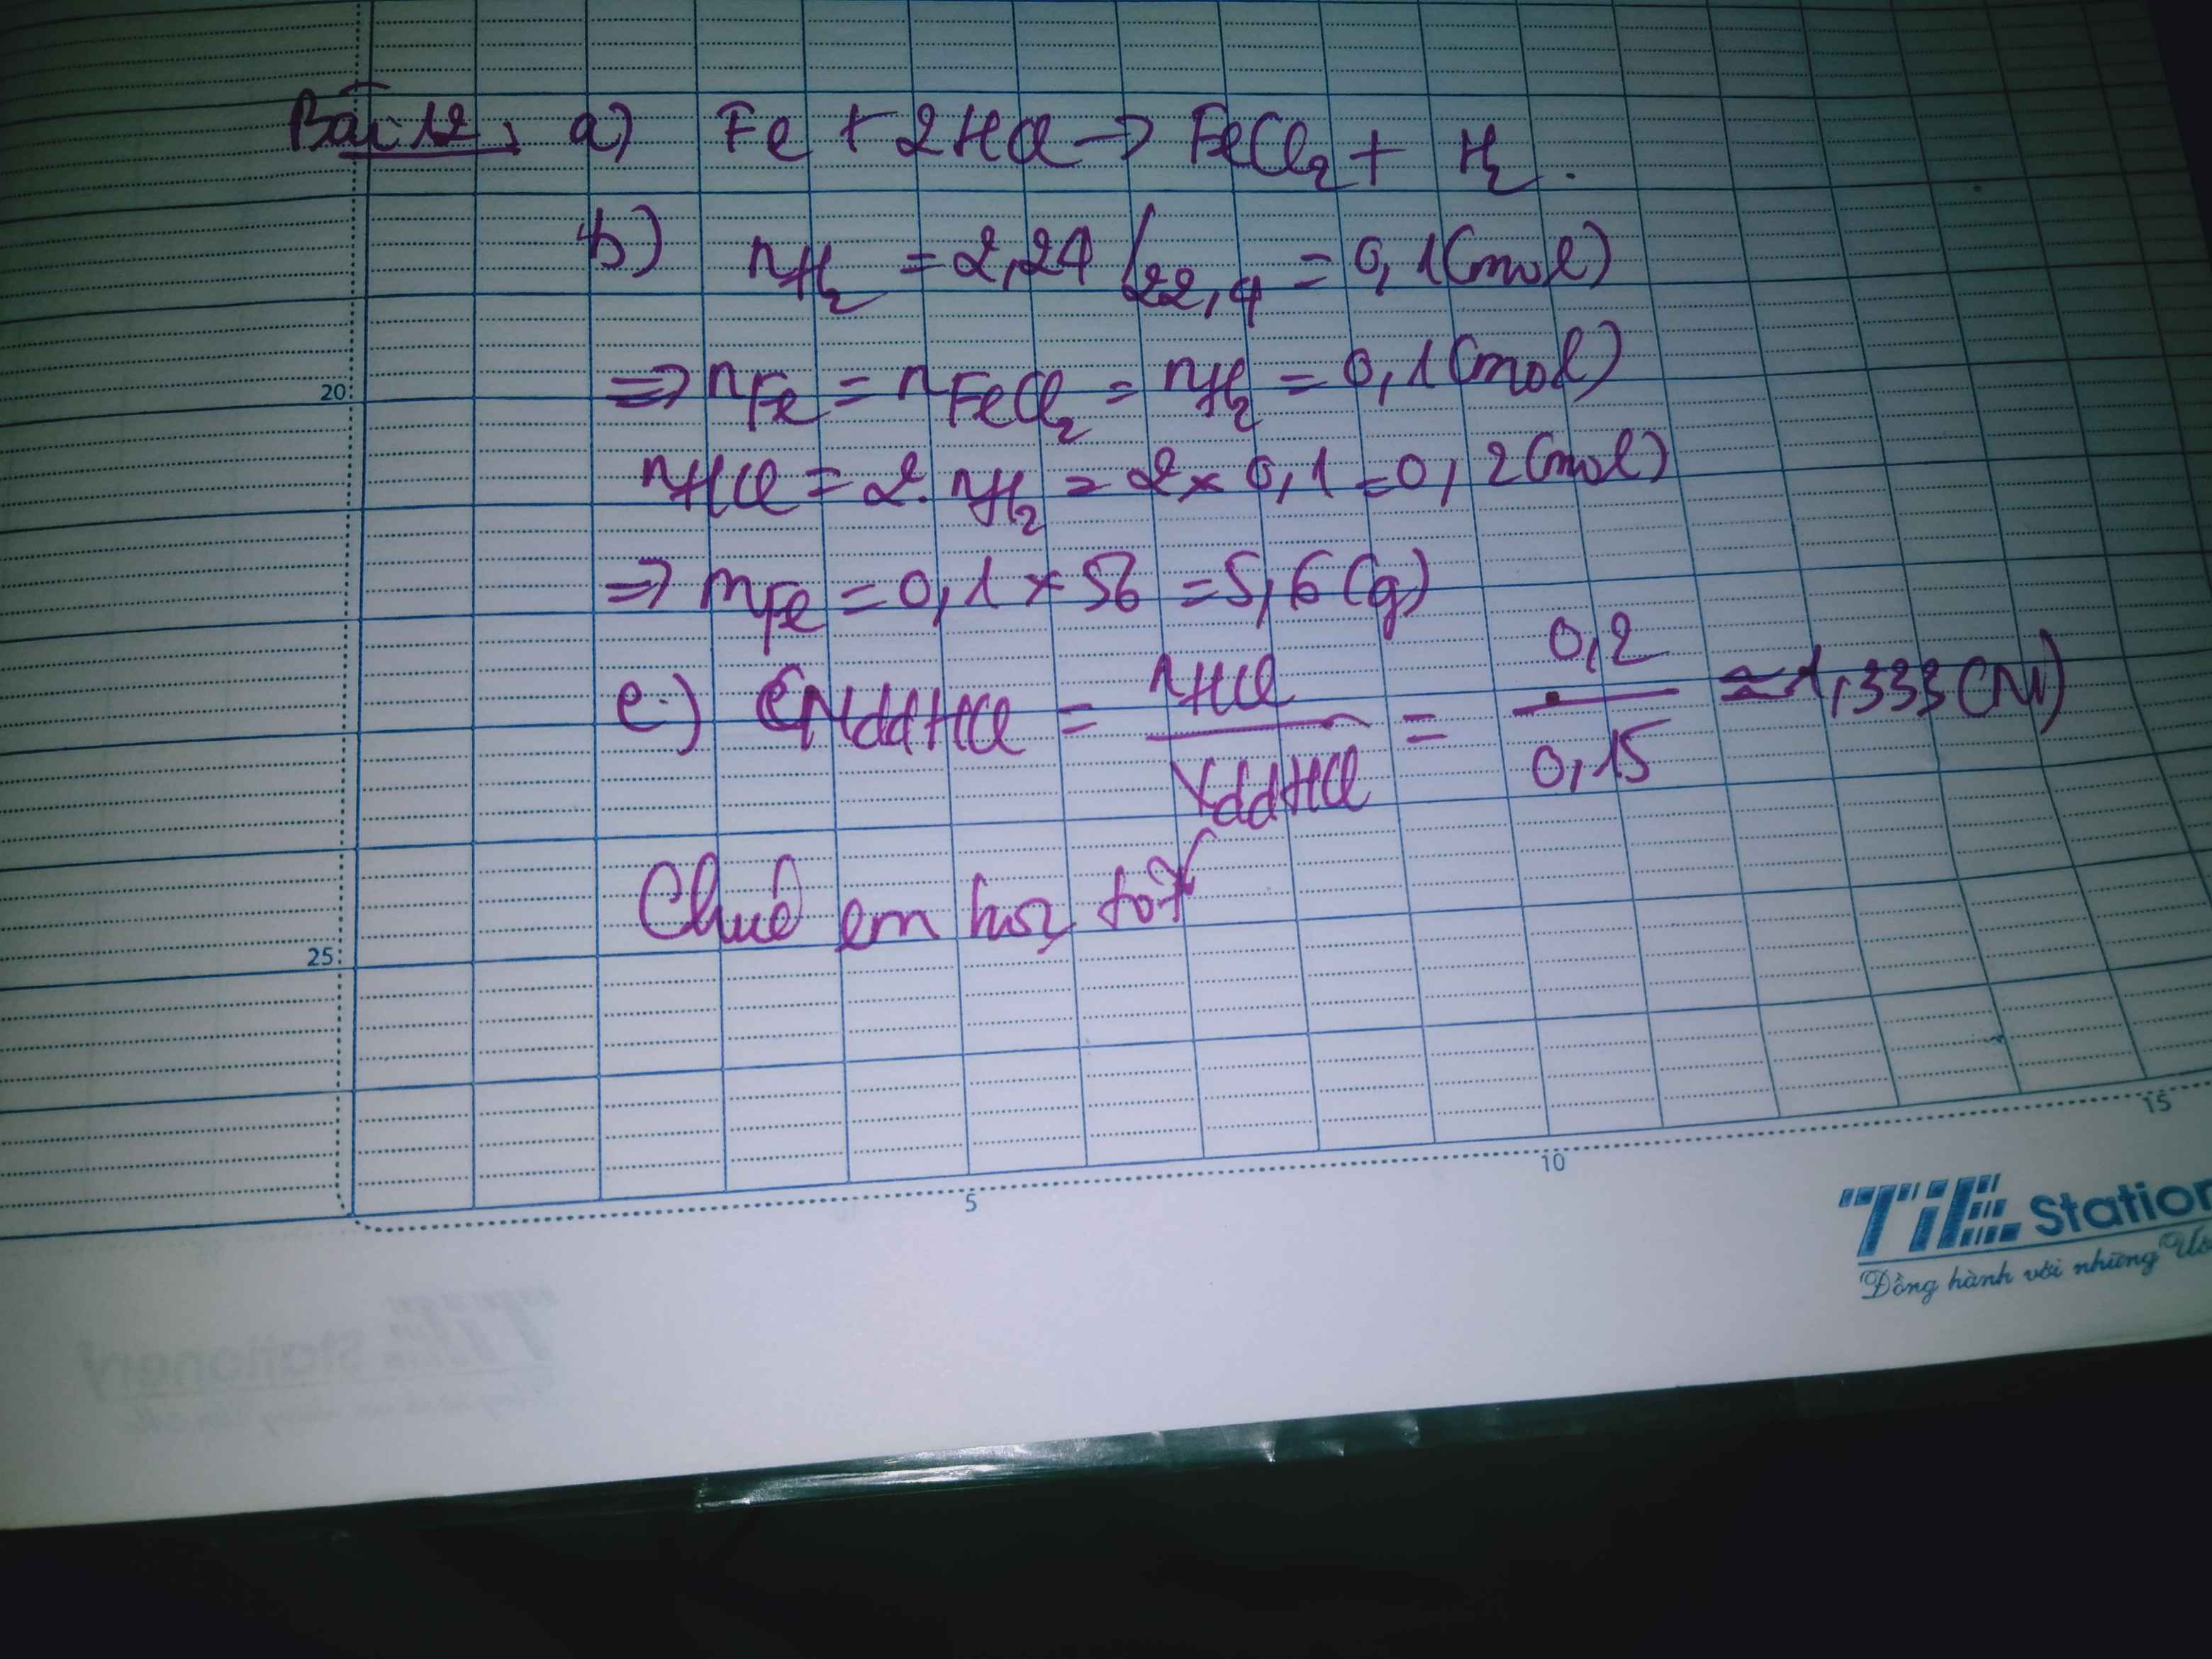 Bài 12: a) Fe + 2HCl → FeCl₂ + H₂.
b) nH₂ = 2,24/22,4 = 0,1(mol)
20
⇒ nFe = nFeCl₂ = nH₂ = 0,1(mol)
nHCl = 2.nH₂ = 2 × 0,1 = 0,2(mol)
⇒ mFe = 0,1 × 56 = 5,6(g)
c) CMddHCl = nHCl / VddHCl = 0,2 / 0,15 ≈ 1,333(M)
Chúc em học tốt
25
5 10 15
TiE Station
Đồng hành với những